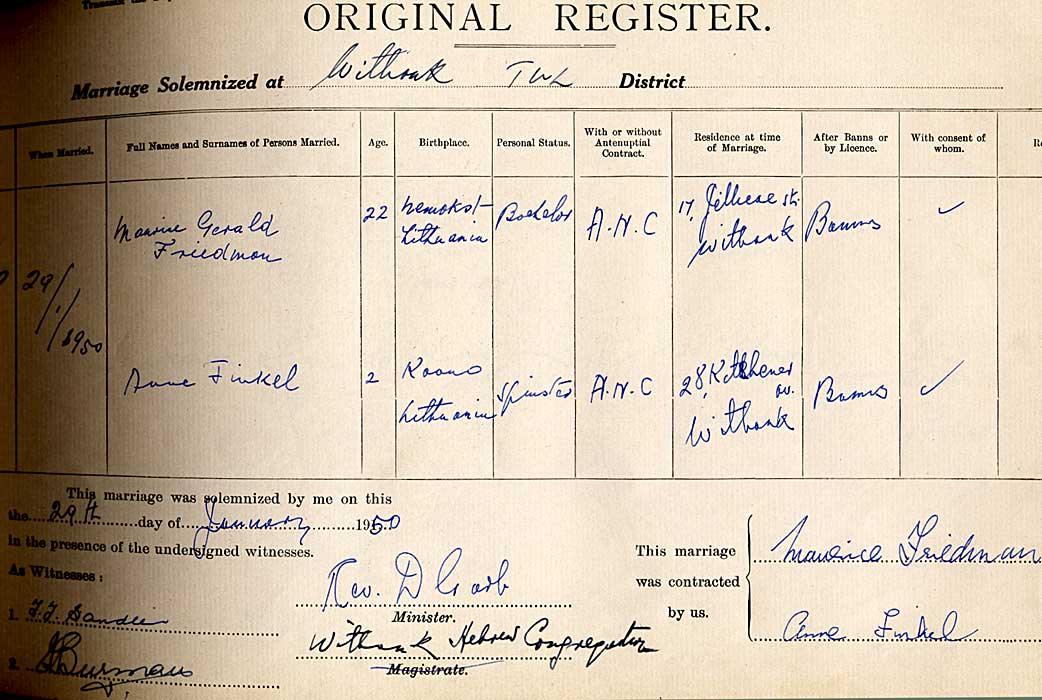 ORIGINAL REGISTER.
Marriage Solemnized at Witbank TVL District
When Married.
Full Names and Surnames of Persons Married.
Age.
Birthplace.
Personal Status.
With or without Antenuptial Contract.
Residence at time of Marriage.
After Banns or by Licence.
With consent of whom.
29/1/1950
Maurice Gerald
Friedman
22
Lithuania
Bachelor
A.N.C
17,
St.
Witbank
Banns
Anne Finkel
2
Kovno
Lithuania
Spinster
A.N.C
28, Kitchener
av.
Witbank
Banns
This marriage was solemnized by me on this
the 29th day of January 1950
in the presence of the undersigned witnesses.
As Witnesses:
1.
2.
Rev. D
Minister.
Witbank Hebrew Congregation
Magistrate.
This marriage
was contracted
by us.
Maurice Friedman
Anne Finkel